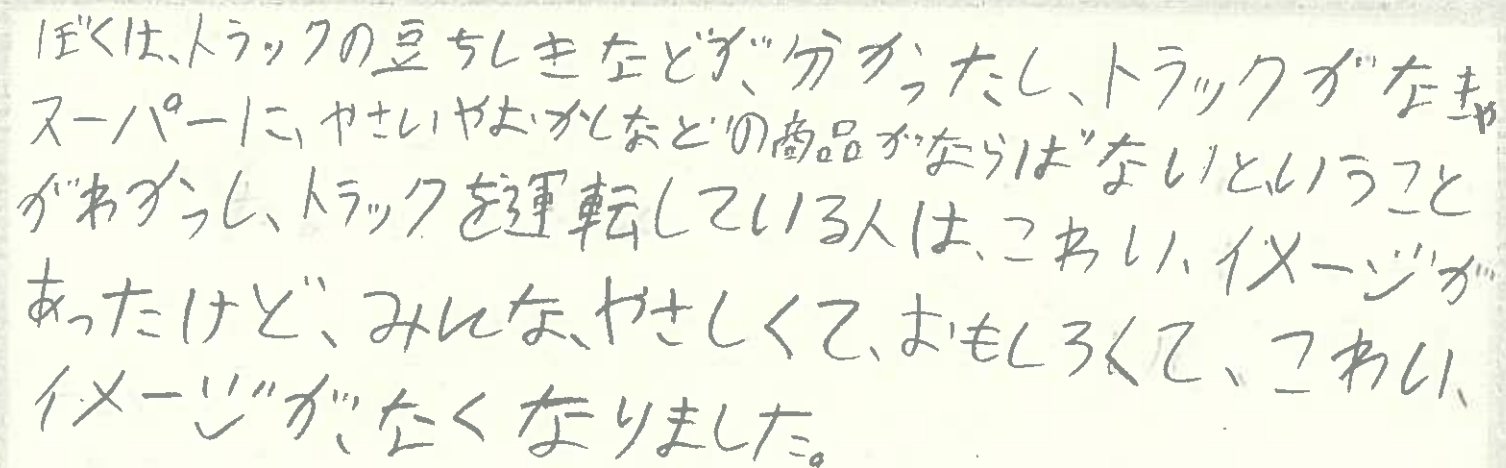 ぼくは、トラックの豆ちしきなどが、分かったし、トラックがなきゃ
スーパーに、やさいやおかしなどの商品がならばないということ
がわかっし、トラックを運転している人は、こわい、イメージが
あったけど、みんな、やさしくて、おもしろくて、こわい、
イメージが、なくなりました。